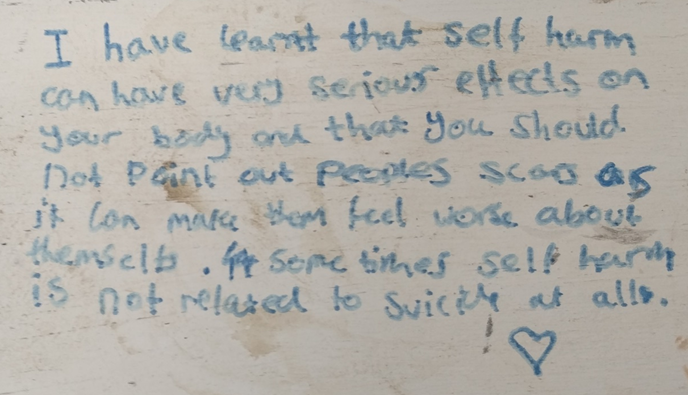 I have learnt that self harm
can have very serious effects on
your body and that you should
not point out peoples scars as
it can make them feel worse about
themselfs. Some times self harm
is not related to suicide at all.